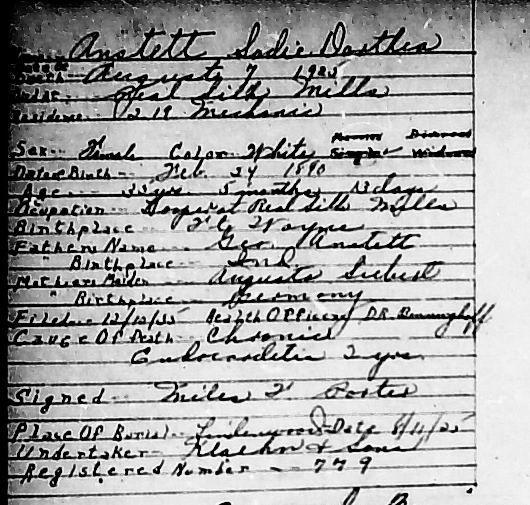 Name - Anstett Sadie Dorthea
Death - August 7 1925
Real Silk Mills
Residence 1219 Mechanic
Married Divorced
Sex - Female Color White Single Widowed
Date of Birth - Feb. 24 1890
Age - 35 yrs 5 months 13 days
Ocupation - Looper at Real Silk Mills
Birthplace - Ft Wayne
Fathers Name - Geo. Anstett
" Birthplace - Ind
Mothers Maiden - Augusta Siebert
" Birthplace - Germany
Filed - Health Officer D.R. Benninghoff
Cause Of Death - Chronic
Endocarditis 2 yrs.
Signed - Miles F Porter
Place Of Burial - Lindenwood Date 8/11/25
Undertaker - Klaehn & Sons
Registered Number - 779